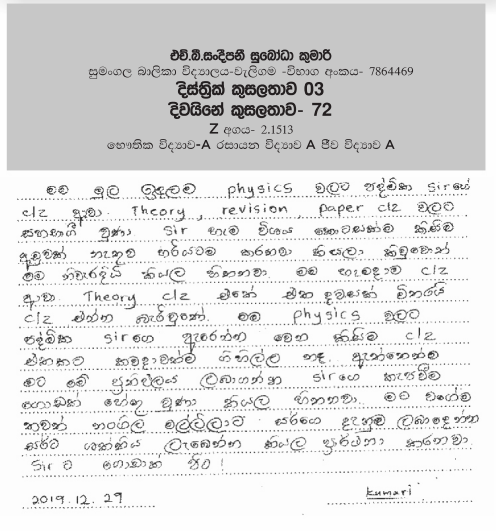 එච්.බී.සංදීපනී සුබෝධා කුමාරි
සුමංගල බාලිකා විද්‍යාලය-වැලිගම -විභාග අංකය- 7864469
දිස්ත්‍රික් කුසලතාව 03
දිවයිනේ කුසලතාව- 72
Z අගය- 2.1513
භෞතික විද්‍යාව-A රසායන විද්‍යාව A ජීව විද්‍යාව A
මම මුල ඉඳලම physics වලට පද්මික sirගෙ
clz ආවා. Theory, revision, paper clz වලට
සහභාගී වුණා Sir හැම විශය කොටසක්ම කිසිම
අඩුවක් නැතුව හරියටම කරනවා කියලා කිවුවොත්
එය නිවැරදියි කියල හිතනවා. මම හැමදාම clz
ආවා. Theory clz එකේ එක දවසක් විතරයි
clz එන්න බැරිවුනේ. මම physics වලට
පද්මික sirගෙ ඇරෙන්න වෙන කිසිම clz
එකකට කවදාවත්ම ගිහිල්ල නෑ. ඇත්තෙන්ම
මට මේ ප්‍රතිඵලය ලබාගන්න sirගෙ කැපවීම
ගොඩක් හේතු වුණා කියල හිතනවා. මට වගේම
තවත් නංගිල මල්ලිලාට සර්ගෙ දැනුම ලබාදෙන්න
සර්ට ශක්තිය ලැබෙන්න කියල ප්‍රාර්ථනා කරනවා.
Sir ට ගොඩාක් පිං!
2019.12.29
kumari